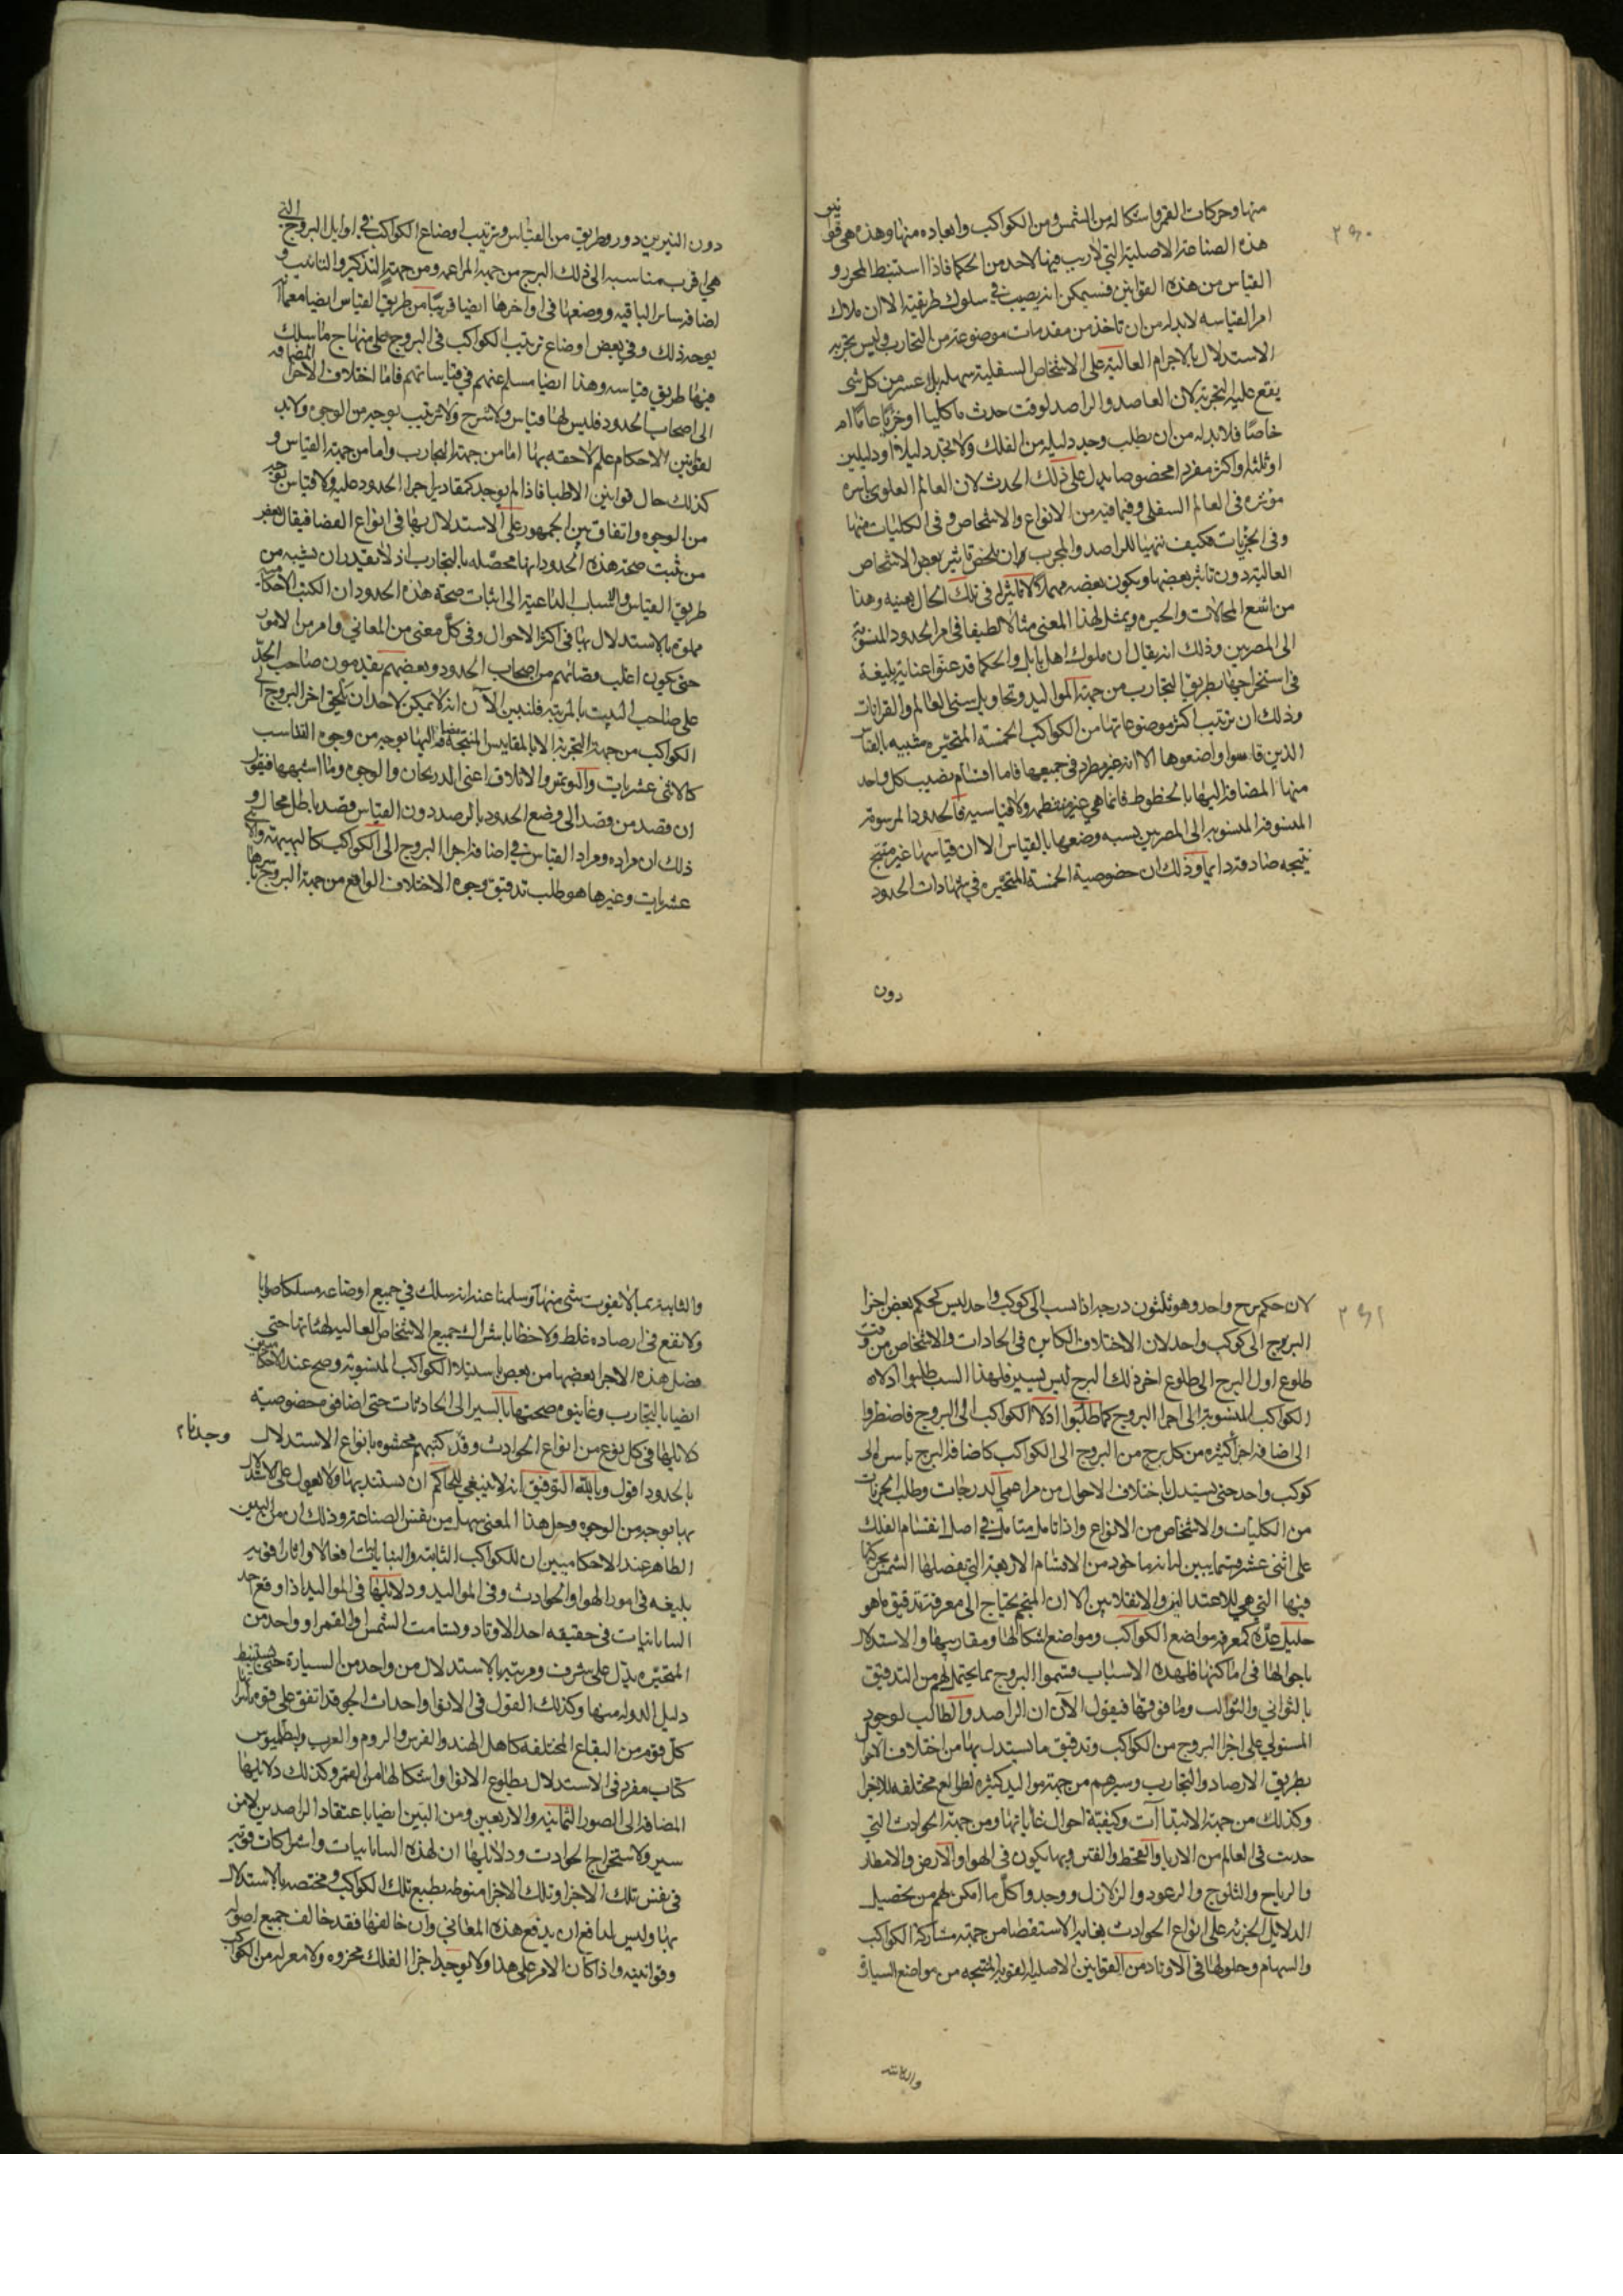 منها وحركات القمر واشكاله من الشمس ومن الكواكب وابعاده منها وهذه هي قوانين
هذه الصناعة الاصلية التي لا ريب فيها لاحد من الحكما فاذا استنبط المحرر و
القياس من هذه القوانين فسيمكن انه يصيب في سلوك طريقية الا ان ملاك
امر القياسه لابد له من ان تاخذ من مقدمات موضوعة من التجارب وليس تجربه
الاستدلال بالاجرام العالية على الاشخاص السفلية سهله بل عسر من كل شى
يقع عليه التجربة لان القاصد والراصد لوقت حدث ما كليا او جزيا عاما ام
خاصا فلابد له من ان يطلب وجه دليله من الفلك ولا يجد دليلا او دليلين
او ثلثه او اكثر مفردا مخصوصا يدل على ذلك الحدث لان العالم العلوى باسره
موثره فى العالم السفلى وفيما فيه من الانواع والاشخاص وفى الكليات منها
وفى الجزيات فكيف يتهيا للراصد والمجرب ان يلخص تاثير بعض الاشخاص
العالية دون تاثير بعضها ويكون بعضه مهملا لا تاثير له فى تلك الحال بعينه وهذا
من اشنع المحالات والحيره ويمثل لهذا المعنى مثالا لطيفا فى امر الحدود المنسوبة
الى المصريين وذلك انه يقال ان ملوك اهل بابل والحكما قد عنوا عناية بليغة
فى استخراجها بطريق التجارب من جهة المواليد وتحاويل سنى العالم والقرانات
وذلك ان ترتيب اكثر موضوعاتها من الكواكب الخمسة المتحيره مشبيه بالقياس
الذين قاسوا واضعوها الا انه غير مطرد فى جميعها فاما اقسام نصيب كل واحد
منها المضافة اليها بالخطوط فانما هي غير منظمه ولا قياسيه فالحدود المرسومة
المنسوبة الى المصريين يسبه وضعها بالقياس الا ان قياسها غير منتج
نتيجه صادقة دايما وذلك ان خصوصية الخمسة المتحيره في شهادات الحدود
دون
دون النيرين دور وطريق من القياس وترتيب اوضاع الكواكب في اوايل البروج التي
هي اقرب مناسبه الى ذلك البرج من جهة المزاعمه ومن جهة التذكير والتانيث و
لضافه ساير الباقيه ووضعها فى اواخرها ايضا قريبا من طريق القياس ايضا معما
يوجد ذلك وفي بعض اوضاع ترتيب الكواكب فى البروج على منهاج ما سلك
فيها طريق قياسه وهذا ايضا مسلم عنهم في قياساتهم فاما اختلاف الاجزا المضافه
الى اصحاب الحدود فليس لها قياس ولا شرح ولا ترتيب بوجه من الوجوه ولا بد
لقوانين الاحكام علم لاحقه بها اما من جهة التجارب واما من جهة القياس و
كذلك حال قوانين الاطبا فاذا لم يوجد كمقادير اجزا الحدود عليه ولا قياس بوجه
من الوجوه واتفاق بين الجمهور على الاستدلال بها فى انواع القضا فيقال لبعض
من ثبت صحة هذه الحدود انها محصله بالتجارب اذ لا نقدر ان يشبه من
طريق القياس والاسباب الداعية الى اثبات صحة هذه الحدود ان الكتب الاحكاميه
مملوة بالاستدلال بها فى اكثر الاحوال وفى كل معنى من المعاني وامر من الامور
حتى يكون اغلب قضائهم من اصحاب الحدود وبعضهم يقدمون صاحب الحد
على صاحب البيت بالمرتبه فلنبين الآن انه لا يمكن لاحد ان يلحق اجزا البروج الى
الكواكب من جهة التجربة الا بالمقاييس المنتجة اليها بوجه من وجوه القياسب
كالاثنى عشريات والنوبهر والاثلاث اعنى الدريجان والوجوه وما اشبهها فيقول
ان قصد من قصد الى وضع الحدود بالرصد دون القياس قصد باطل محال و
ذلك ان مراده ومراد القياس في اضافة اجزا البروج الى الكواكب كالبهيمته والاثنى
عشريات وغيرها هو طلب تدقيق وجوه الاختلاف الواقع من جهة البروج باسرها
لان حكم برج واحد وهو ثلثون درجه اذا نسب الى كوكب واحد ليس كحكم بعض اجزا
البروج الى كوكب واحد لان الاختلاف الكاين فى الحادات والاشخاص من وقت
طلوع اول البرج الى طلوع اخر ذلك البرج ليس بيسير فلهذا السبب طلبوا ادلاه
الكواكب المنسوبة الى اجزا البروج كما طلبوا ادلا الكواكب الى البروج فاضطروا
الى اضافة اجزا كثيره من كل برج من البروج الى الكواكب كاضافة البرج باسره الى
كوكب واحد حتى يستدل باختلاف الاحوال من مزاعمى الدرجات وطلب الجزيات
من الكليات والاشخاص من الانواع واذا تامل متامل في اصل انقسام الفلك
على اثنى عشر قسما يبين له انه ماخوذ من الاقسام الاربعة التي تفصلها الشمس بحركتها
فيها التي هي للاعتدالين والانقلابين الا ان المنجم يحتاج الى معرفة تدقيق ما هو
جليل عنده كمعرفة مواضع الكواكب ومواضع اشكالها ومقاديرها والاستدلال
باحوالها فى اماكنها فلهذه الاسباب قسموا البروج بما يحتمل لهم من التدقيق
بالثواني والثوالث وما فوقها فيقول الآن ان الراصد والطالب لوجود
المستولي على اجزا البروج من الكواكب وتدقيق ما يستدل بها من اختلاف الاحوال
بطريق الارصاد والتجارب وسيرهم من جهة مواليد كثيره لطوالع مختلفه للاجزا
وكذلك من جهة الابتداآت وكيفية احوال غاياتها ومن جهة الحوادث التي
حدث فى العالم من الاربا والقحط والفتن وبها يكون فى الهوا والارض والامطار
والرياح والثلوج والرعود والزلازل ووجدوا كل ما امكن لهم من تحصيل
الدلايل الجزئيه على انواع الحوادث بغاية الاستقصا من جهة مشاركة الكواكب
والسهام وحلولها فى الاوتاد من القوانين الاصليه القويه المنتجه من مواضع السيارة
والثابتة
والثابتة بما لا يفوت شى منها وسلمنا عند انه سلك في جميع اوضاعه مسلكا صوابا
ولا تقع فى ارصاده غلط ولا خطا باشراك جميع الاشخاص العاليه لهئاتها حتى
فضل هذه الاجزا بعضها من بعض باستيلا الكواكب المنسوبة وصح عند الاحكاميين
ايضا بالتجارب وغاينوه صحتها بالسير الى الحادثات حتى اضافوا مخصوصيه
دلايلها فى كل نوع من انواع الحوادث وقد وجدنا كتبهم محشوه بانواع الاستدلال
بالحدود اقول وبالله التوفيق انه لا ينبغي للحاكم ان يستند بها ولا يعول على الاستدلال
بها بوجه من الوجوه وحل هذا المعنى سهل من نفس الصناعة وذلك ان من البين
الظاهر عند الاحكاميين ان للكواكب الثابته والبيابانيات افعالا واثارا قويه
بليغه فى امور الهوا والحوادث وفى المواليد ودلايلها فى المواليد اذا وقع احد
البيابانيات فى حقيقه احد الاوتاد وسامت الشمس او القمر او واحد من
المتحيره يدل على شرف ومرتبه بالاستدلال من واحد من السيارة حتى يستنبط
دليل الدوله منها وكذلك القول فى الانوا واحداث الجو قد اتفق على قوم
كل قوم من البقاع المختلفه كاهل الهند والفرس والروم والعرب ولبطلميوس
كتاب مفرد فى الاستدلال بطلوع الانوا واشكالها من القمر وكذلك دلايلها
المضافة الى الصور الثمانيه والاربعين ومن البين ايضا باعتقاد الراصدين لامر
سير ولاستخراج الحوادث ودلايلها ان لهذه البيابانيات واشراكات قويه
فى نفس تلك الاجزا وتلك الاجزا منوطه بطبع تلك الكواكب ومختصه بالاستدلال
بها وليس لدافع ان يدفع هذه المعاني وان خالفها فقد خالف جميع اصوله
وقوانينه واذا كان الامر على هذا ولا يوجد اجزا الفلك محزوه ولا معراه من الكواكب